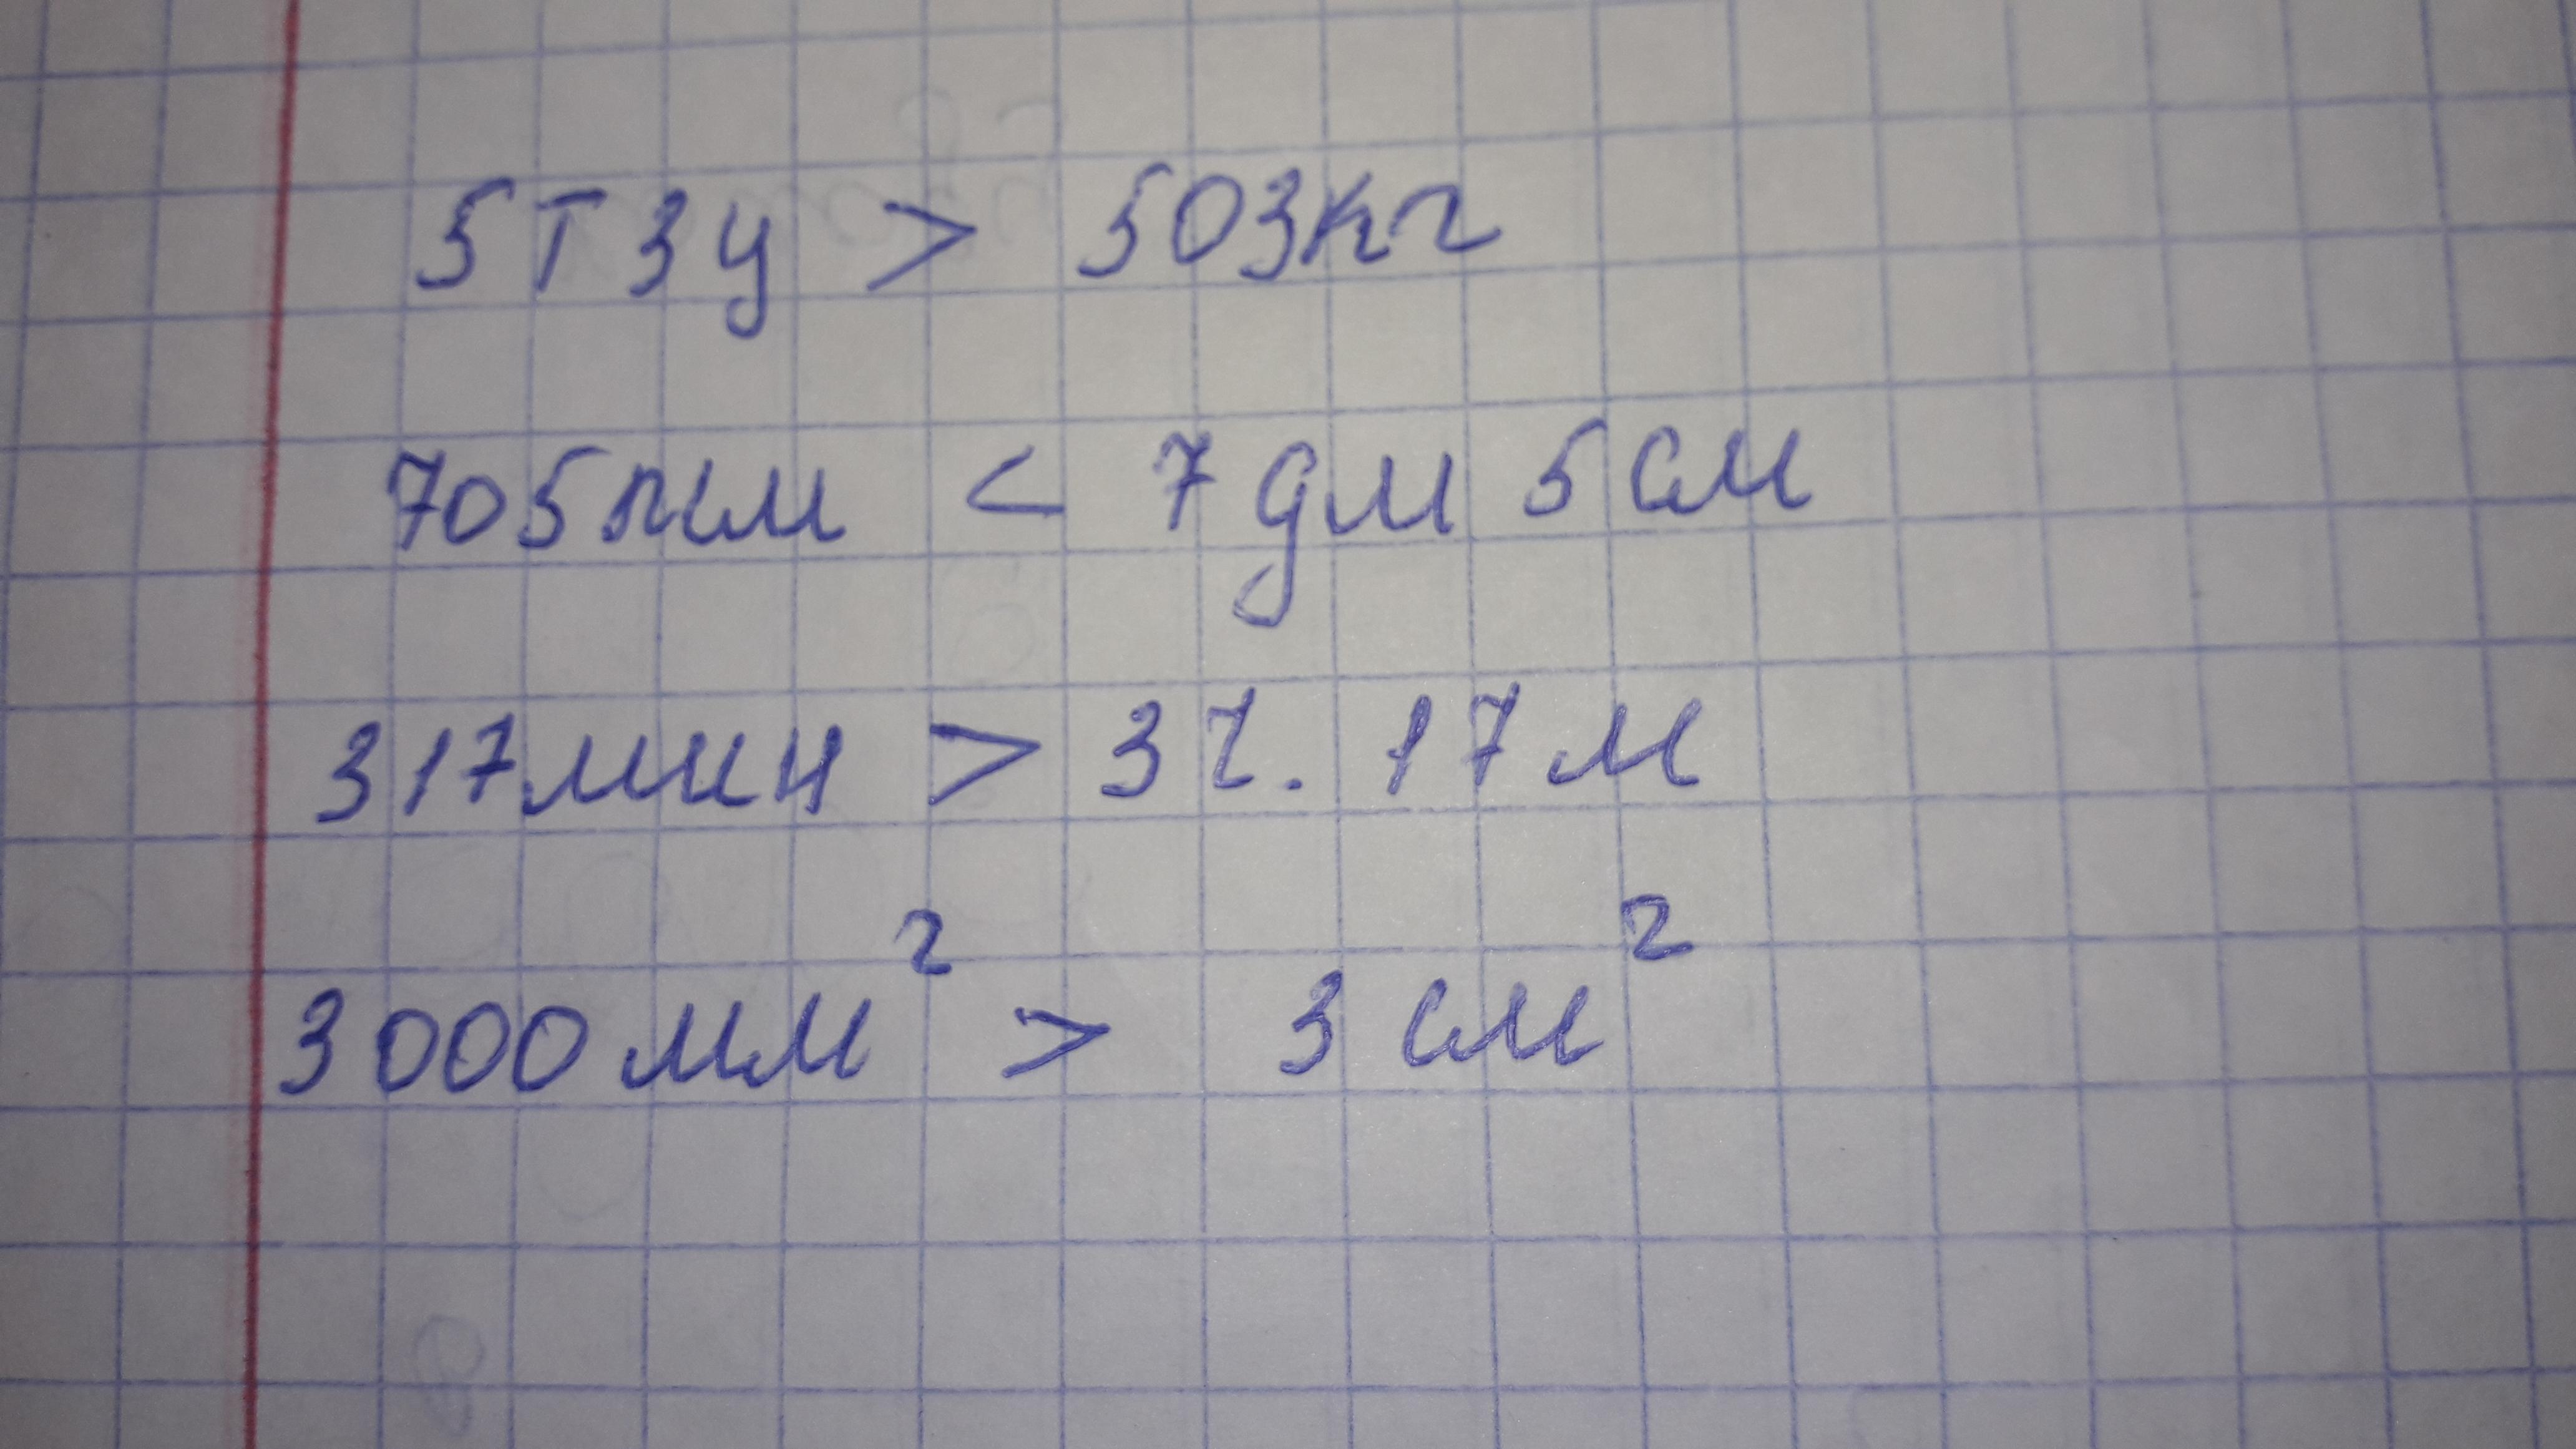 5т 3ц > 503кг
705мм < 7 дм 5 см
317мин > 3ч. 17м
3000 мм² > 3 см²